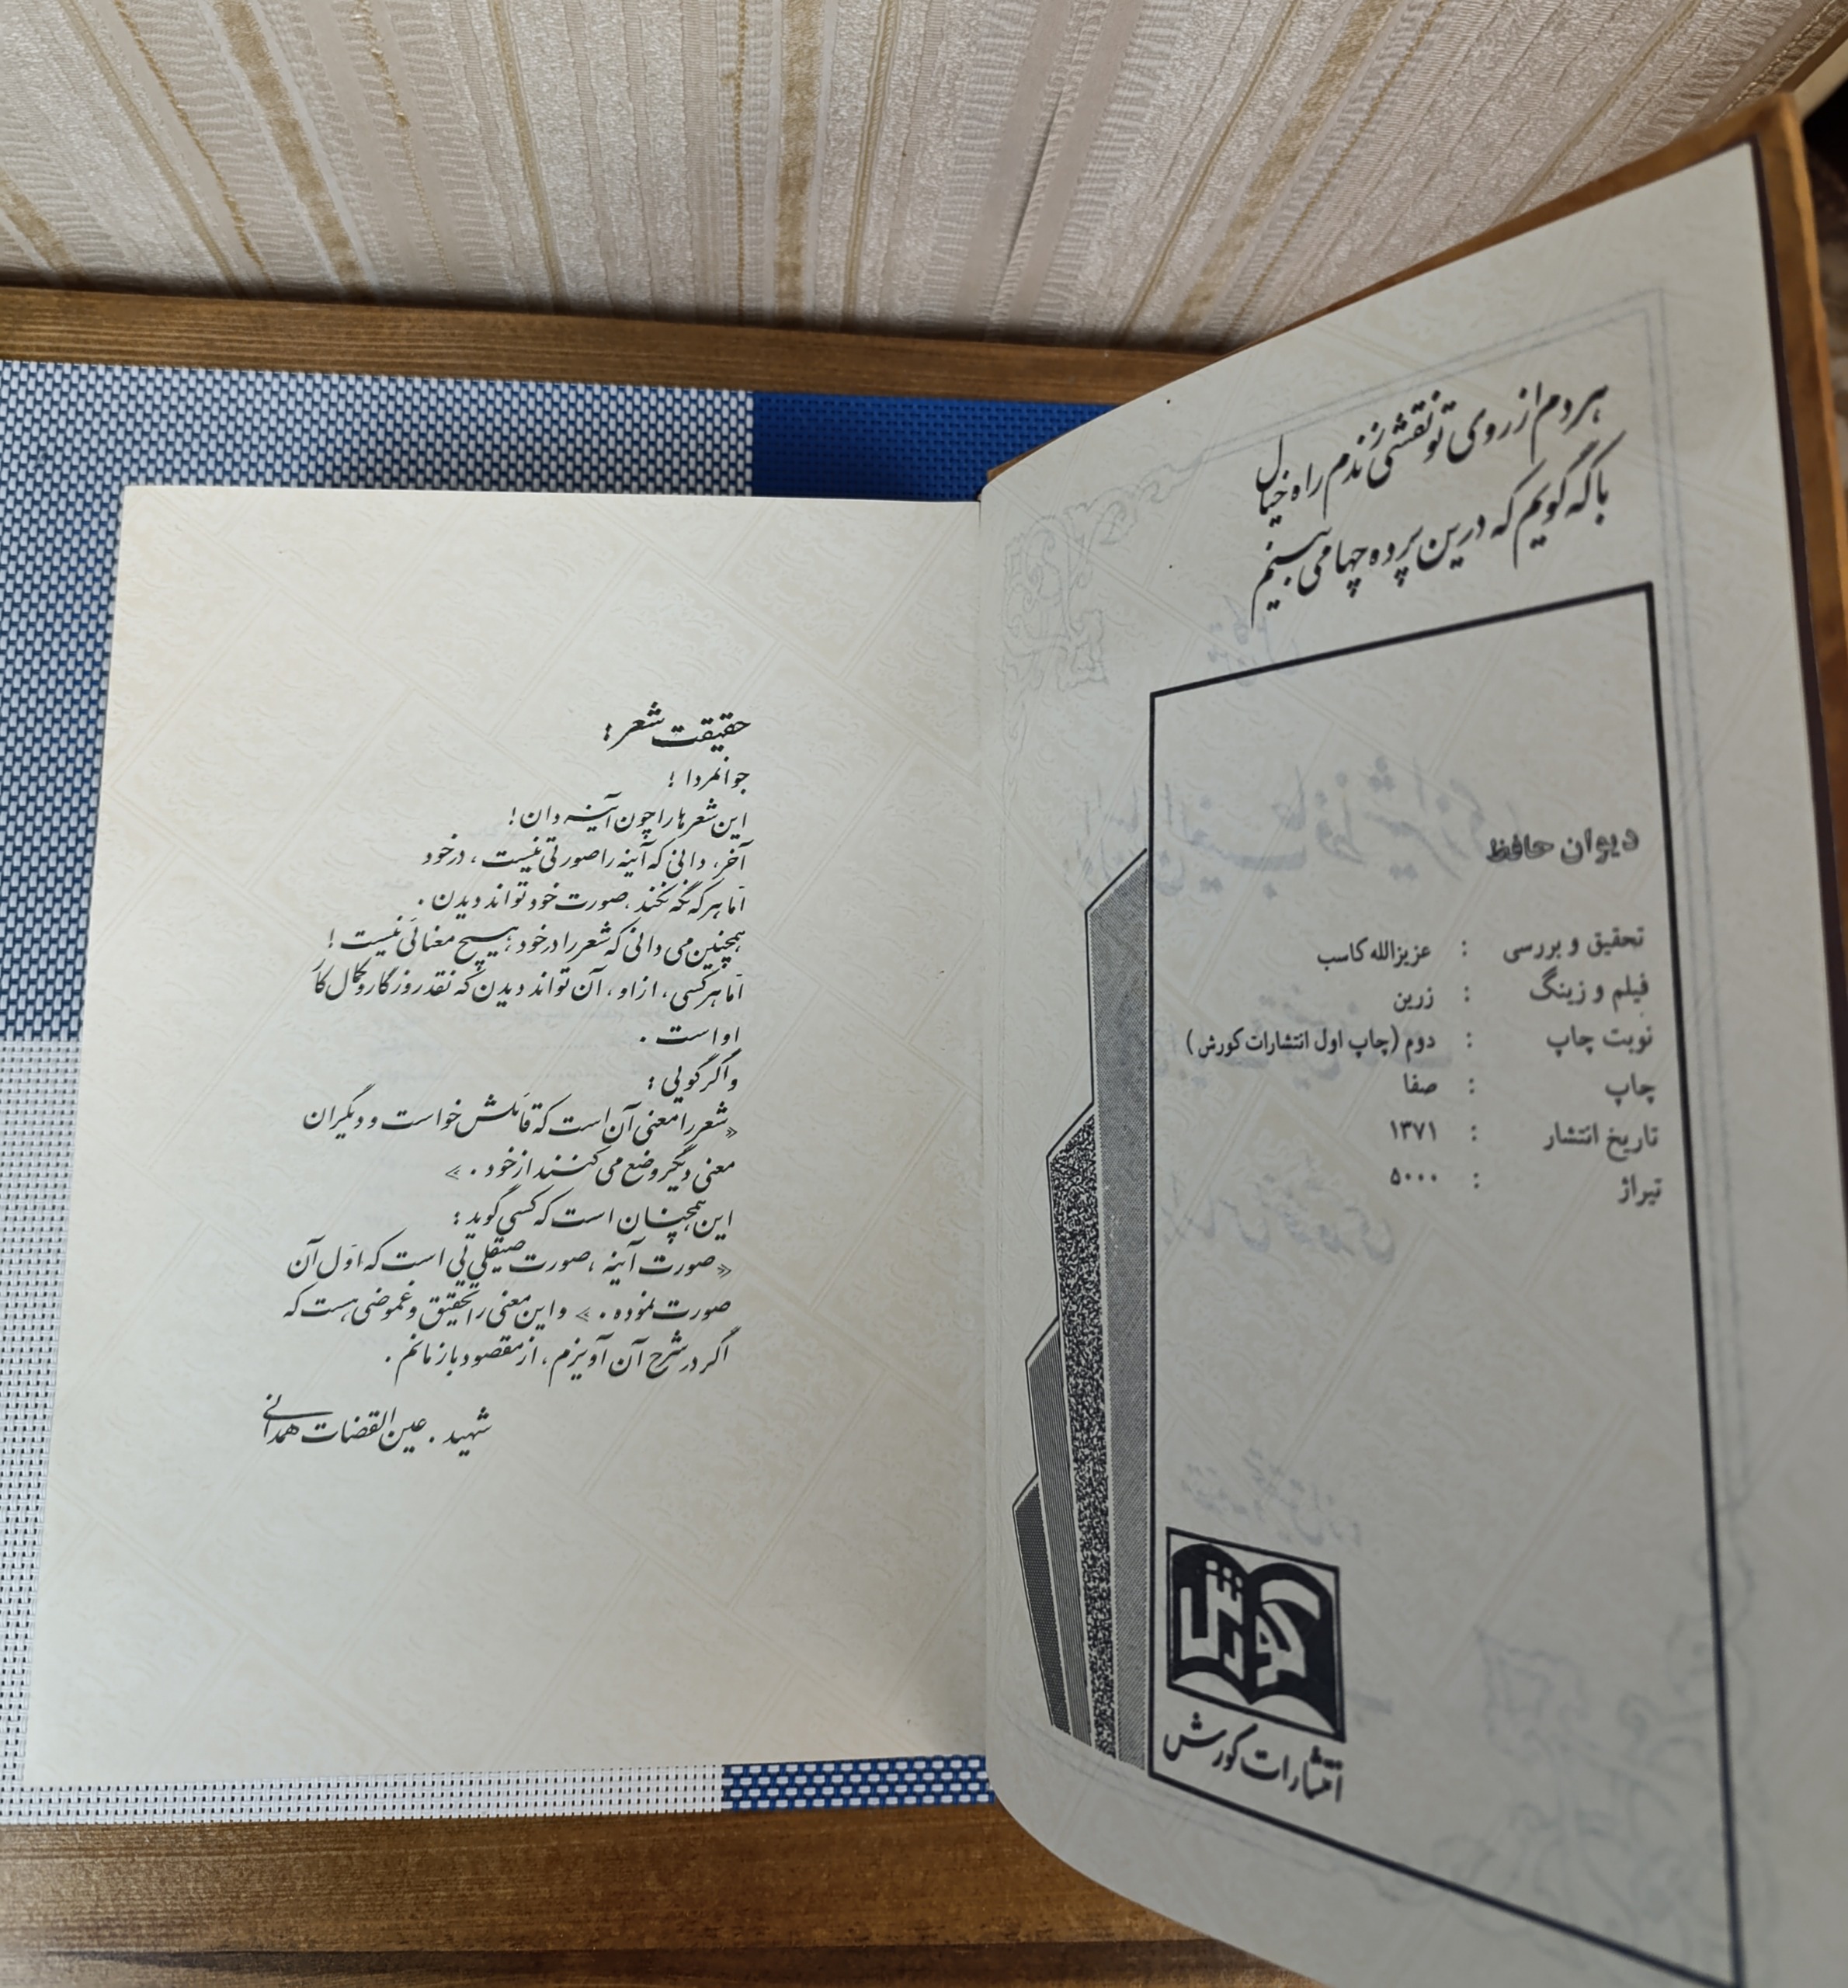 هر دم از روی تو نقشی زندم راه خیال
با که گویم که درین پرده چها می بینم
دیوان حافظ
تحقیق و بررسی : عزیزالله کاسب
فیلم و زینگ : زرین
نوبت چاپ : دوم (چاپ اول انتشارات کورش)
چاپ : صفا
تاریخ انتشار : ۱۳۷۱
تیراژ : ۵۰۰۰
کورش
انتشارات کورش
حقیقت شعر :
جوانمردا !
این شعرها را چون آینه دان !
آخر، دانی که آینه را صورتی نیست ، در خود
اما هر که نگه کند ، صورت خود تواند دیدن .
همچنین می دانی که شعر را در خود ، هیچ معنائی نیست !
اما هر کسی ، از او ، آن تواند دیدن که نقد روزگار و کمال کار
او است .
و اگر گویی :
«شعر را معنی آن است که قائلش خواست و دیگران
معنی دیگر وضع می کنند از خود . »
این همچنان است که کسی گوید :
«صورت آینه ، صورت صیقلی یی است که اوّل آن
صورت نموده . » و این معنی را تحقیق و غموضی هست که
اگر در شرح آن آویزم ، از مقصود باز مانم .
شهید . عین القضات همدانی